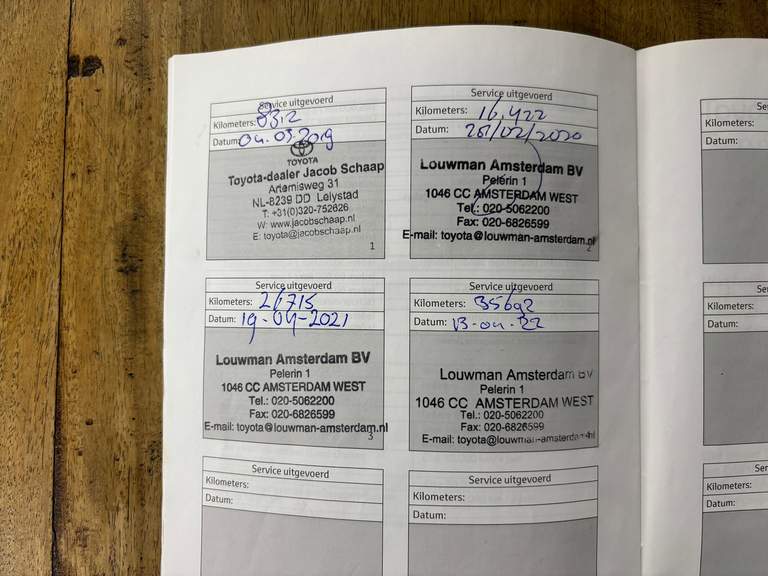 Service uitgevoerd
Kilometers: 8312
Datum: 04.03.2019
TOYOTA
Toyota-dealer Jacob Schaap
Artemisweg 31
NL-8239 DD Lelystad
T: +31(0)320-752626
W: www.jacobschaap.nl
E: toyota@jacobschaap.nl
1
Service uitgevoerd
Kilometers: 16,422
Datum: 28/02/2020
Louwman Amsterdam BV
Pelerin 1
1046 CC AMSTERDAM WEST
Tel.: 020-5062200
Fax: 020-6826599
E-mail: toyota@louwman-amsterdam.nl
2
Service uitgevoerd
Kilometers: 26715
Datum: 19-04-2021
Louwman Amsterdam BV
Pelerin 1
1046 CC AMSTERDAM WEST
Tel.: 020-5062200
Fax: 020-6826599
E-mail: toyota@louwman-amsterdam.nl
3
Service uitgevoerd
Kilometers: 35692
Datum: 13-04-22
Louwman Amsterdam BV
Pelerin 1
1046 CC AMSTERDAM WEST
Tel.: 020-5062200
Fax: 020-6826599
E-mail: toyota@louwman-amsterdam.nl
Service uitgevoerd
Kilometers:
Datum:
Service uitgevoerd
Kilometers:
Datum:
Kilometers:
Datum:
Kilometers:
Datum:
Kilometers:
Datum: